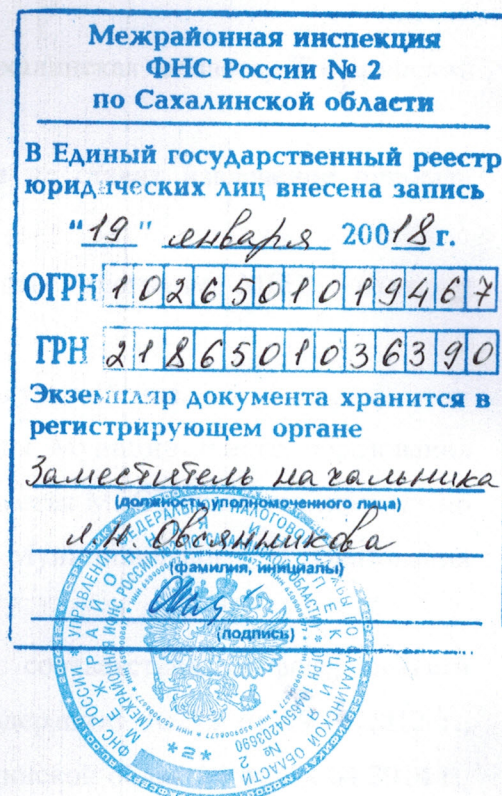 Межрайонная инспекция
ФНС России № 2
по Сахалинской области
В Единый государственный реестр
юридических лиц внесена запись
"19" января 20018 г.
ОГРН 1026501019467
ГРН 2186501036390
Экземпляр документа хранится в
регистрирующем органе
Заместитель начальника
(должность уполномоченного лица)
Л.Н. Овсянникова
(фамилия, инициалы)
(подпись)
ФНС РОССИИ * УПРАВЛЕНИЕ ФЕДЕРАЛЬНОЙ НАЛОГОВОЙ СЛУЖБЫ ПО САХАЛИНСКОЙ ОБЛАСТИ
МЕЖРАЙОННАЯ ИНСПЕКЦИЯ № 2
ОГРН 1046504203690
*2*